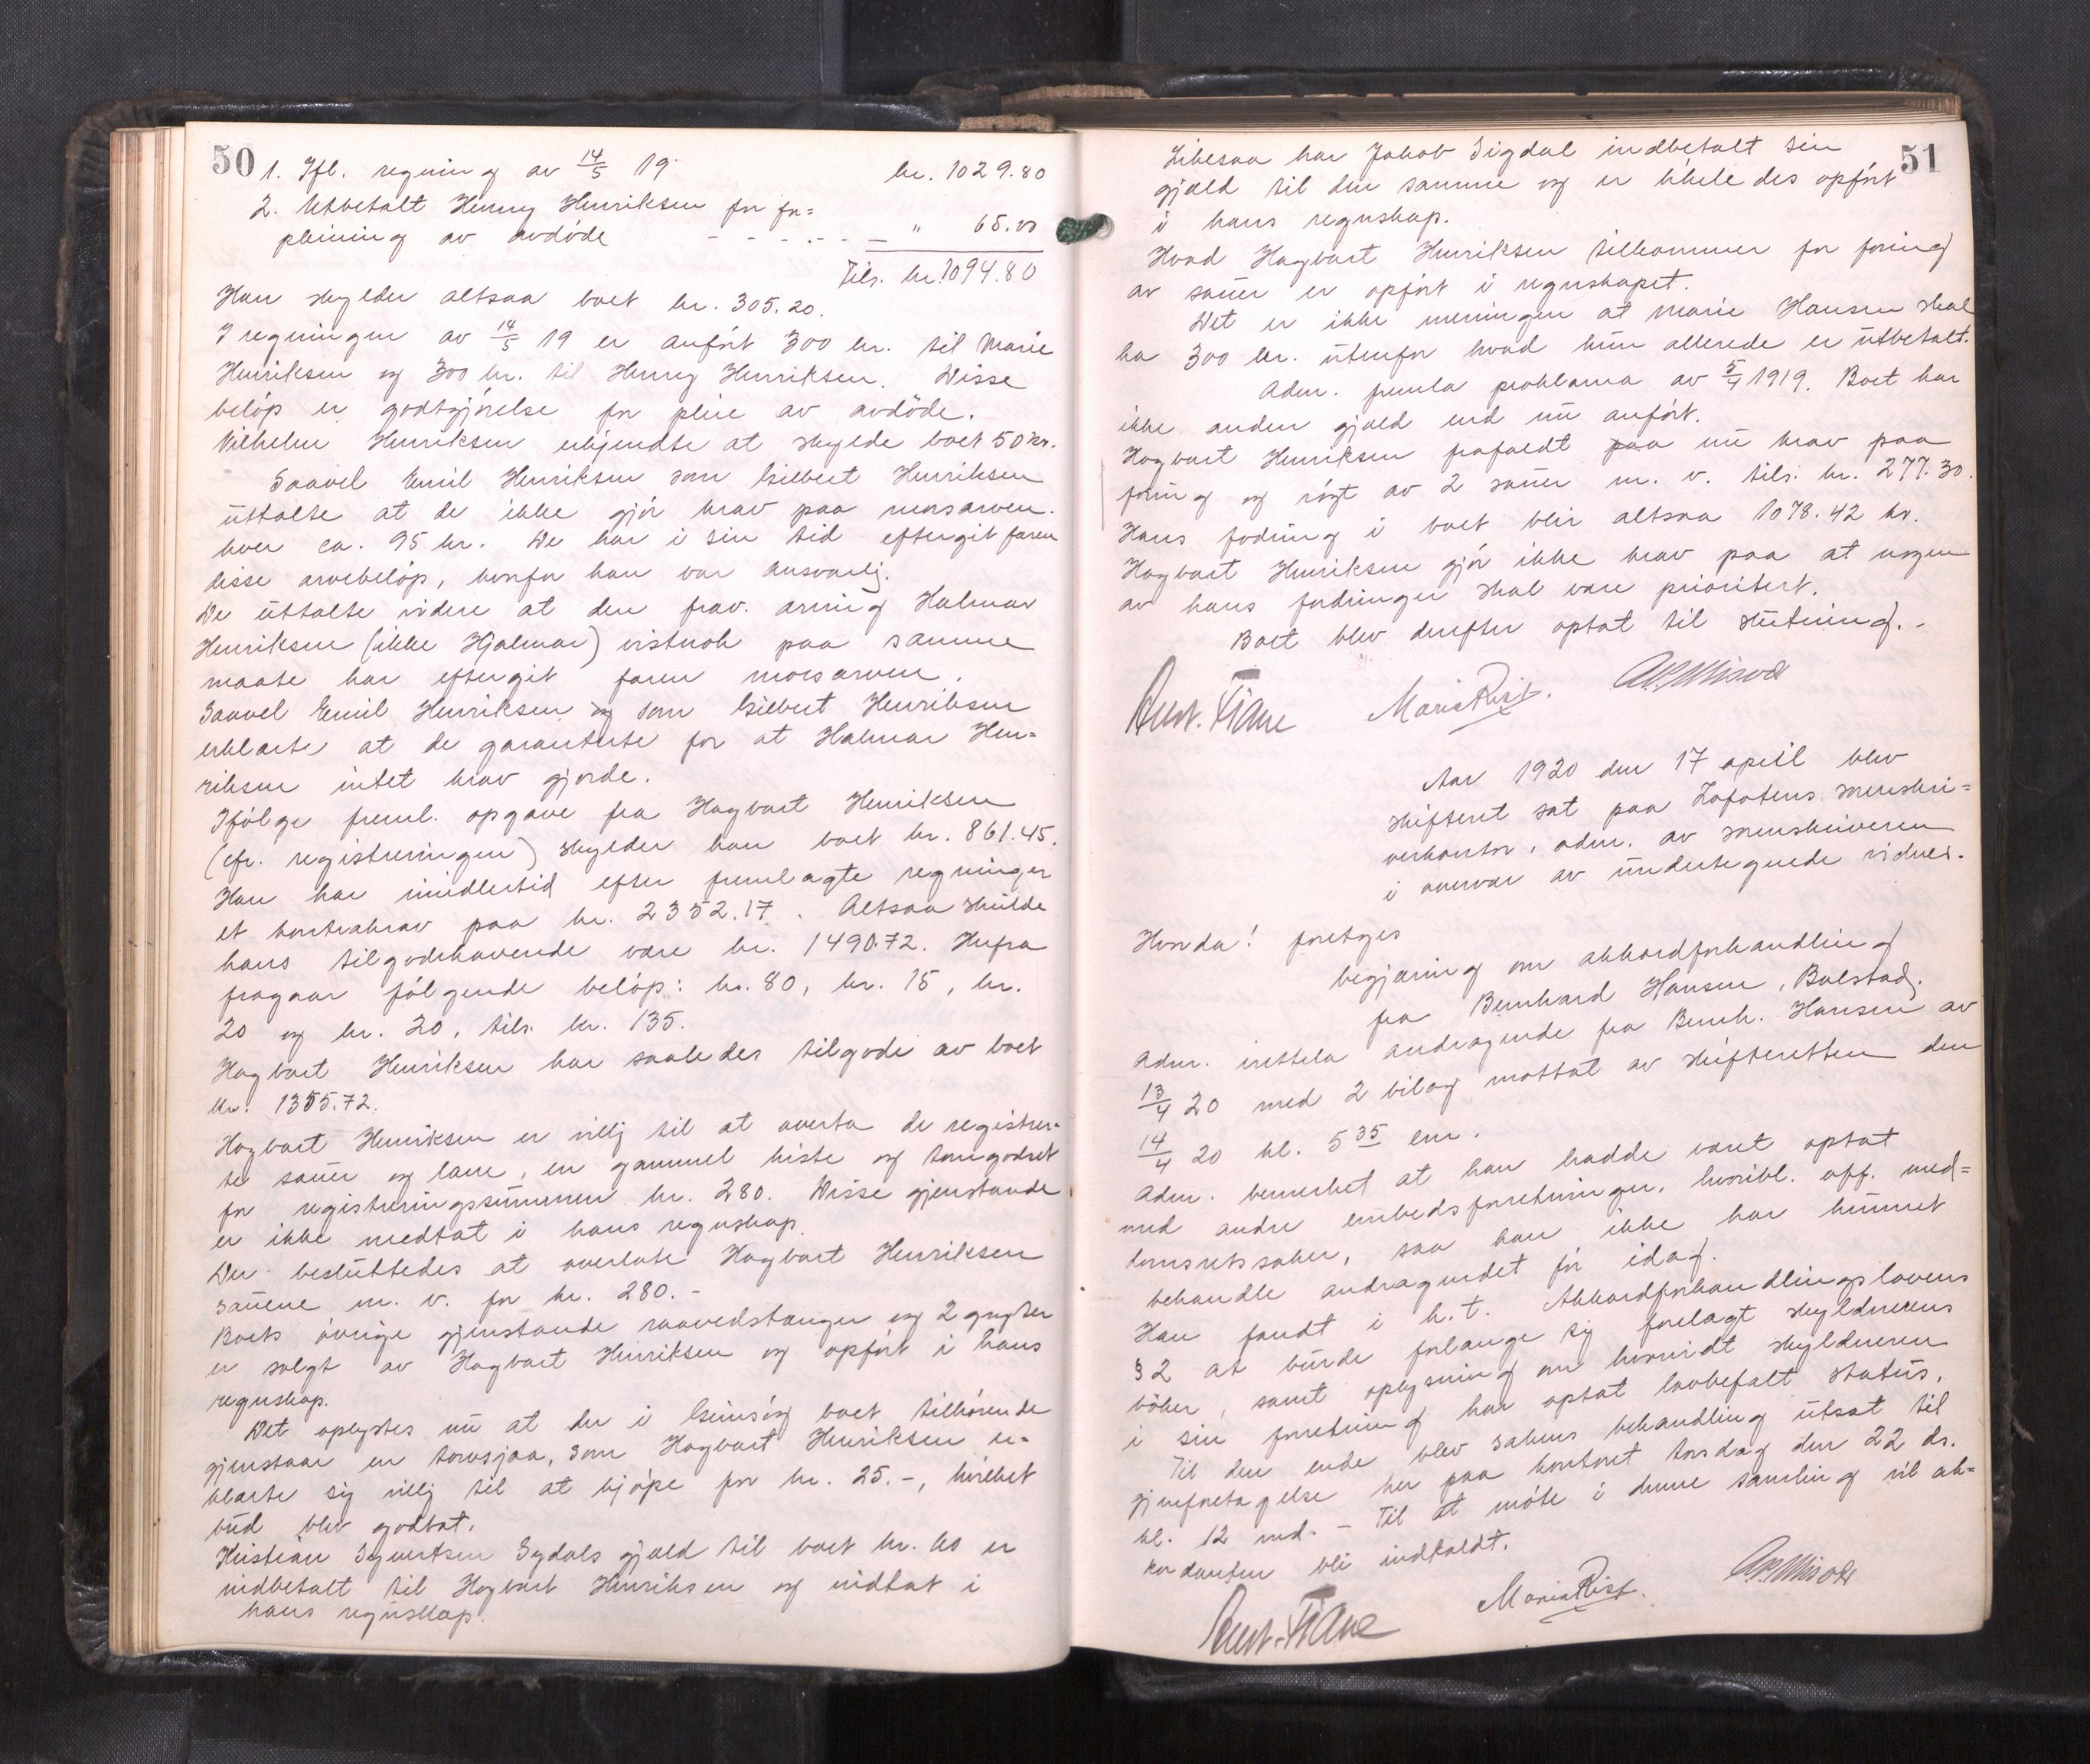 50
1. Ifl. regning av 14/5 19 kr. 1029.80
2. Utbetalt Henry Henriksen for for=
pleining av avdöde - - - - - - " 65.00
Tils. kr. 1094.80
Han skylder altsaa boet kr. 305.20.
I regningen av 14/5 19 er anfört 300 kr. til Marie
Henriksen og 300 kr. til Henry Henriksen. Disse
belöp er godtgjörelse for pleie av avdöde.
Vilhelm Henriksen erkjendte at skylde boet 50 kr.
Saavel Emil Henriksen som Gilbert Henriksen
uttalte at de ikke gjör krav paa morsarven.
hver ca. 95 kr. De har i sin tid eftergit faren
disse arvebelöp, hvorfor han var ansvarlig.
De uttalte videre at den frav. arving Halmar
Henriksen (ikke Hjalmar) vistnok paa samme
maate har eftergit faren morsarven.
Saavel Emil Henriksen og som Gilbert Henriksen
erklærte at de garanterte for at Halmar Hen=
riksen intet krav gjorde.
Ifölge freml. opgave fra Hagbart Henriksen
(cfr. registreringen) skylder han boet kr. 861.45.
Han har imidlertid efter fremlagte regninger
et kontrakrav paa kr. 2352.17. Altsaa skulde
hans tilgodehavende være kr. 1490.72. Herfra
fragaar fölgende belöp: kr. 80, kr. 15, kr.
20 og kr. 20, tils. kr. 135.
Hagbart Henriksen har saaledes tilgode av boet
kr. 1355.72.
Hagbart Henriksen er villig til at overta de registrer=
te sauer og lam, en gammel kiste og
for registreringssummen kr. 280. Disse gjenstande
er ikke medtat i hans regnskap.
Der besluttedes at overlate Hagbart Henriksen
sauene m. v. for kr. 280.-
Boets övrige gjenstande raavedstanger og 2 gryter
er solgt av Hagbart Henriksen og opfört i hans
regnskap.
Det oplystes nu at der i Gimsöy boet tilhörende
gjenstaar en torvsjaa, som Hagbart Henriksen er=
klærte sig villig til at kjöpe for kr. 25.-, hvilket
bud blev godtat.
Kristian Sjurtsen Sydals gjæld til boet kr. 60 er
indbetalt til Hagbart Henriksen og indtat i
hans regnskap.
51
Likesaa har Jakob Sigdal indbetalt sin
gjæld til den samme og er likeledes opfört
i hans regnskap.
Hvad Hagbart Henriksen tilkommer for foring
av sauer er opfört i regnskapet.
Det er ikke meningen at Marie Hansen skal
ha 300 kr. utenfor hvad hun allerede er utbetalt.
Adm. fremla proklama av 5/4 1919. Boet har
ikke anden gjæld end nu anfört.
Hagbart Henriksen frafaldt paa nu krav paa
foring og rögt av 2 sauer m. v. tils. kr. 277.30.
Hans fodring i boet blir altsaa 1078.42 kr.
Hagbart Henriksen gjör ikke krav paa at nogen
av hans fordringer skal være prioritert.
Boet blev derefter optat til slutning.-
Maria Rist.
Aar 1920 den 17 april blev
skifteret sat paa Lofotens sorenskri=
verkontor, adm. av sorenskriveren
i overvær av undertegnede vidner.
Hvorda! foretoges
begjæring om akkordforhandling
fra Bernhard Hansen, Bolstad.
Adm. irettela andragende fra Bernh. Hansen av
13/4 20 med 2 bilag mottat av skifteretten den
14/4 20 kl. 5 35 em.
Adm. bemerket at han hadde været optat
med andre embedsforretninger, hvoribl. off. med=
domsretssaker, saa han ikke har kunnet
behandle andragendet för idag.
Han fandt i h. t. Akkordforhandlingslovens
§ 2 at burde forlange sig forelagt skyldnerens
böker, samt oplysning om hvorvidt skyldneren
i sin forretning har optat lovbefalt status.
Til den ende blev sakens behandling utsat til
gjenforetagelse her paa kontoret torsdag den 22 ds.
kl. 12 md. - Til at möte i denne samling vil ak=
kordanten bli indkaldt.
Maria Rist.